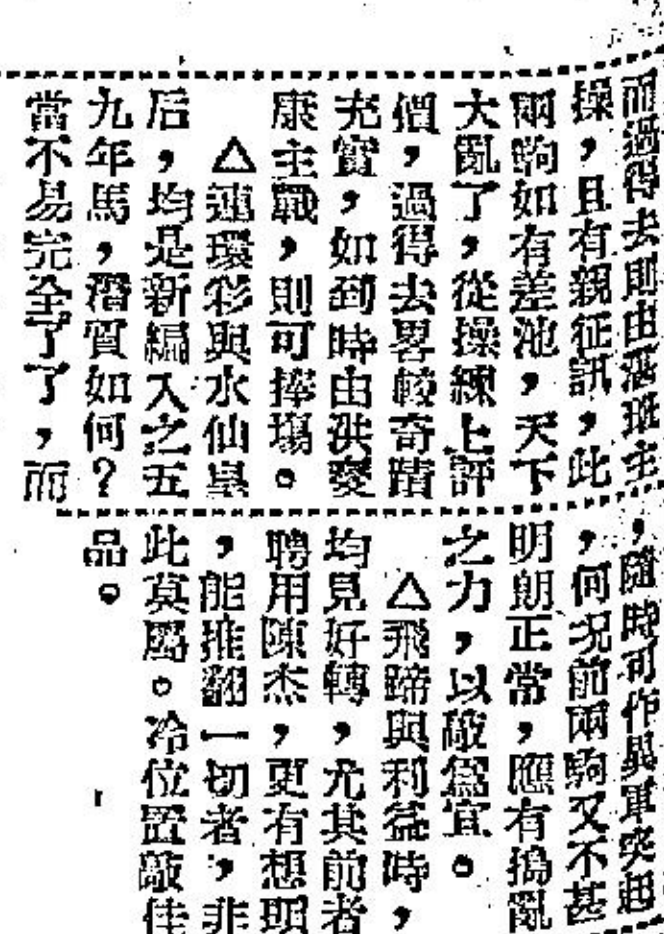 而過得去則由湛班主
操，且有親征訊，此
兩駒如有差池，天下
大亂了，從操練上評
價，過得去畧較奇蹟
充實，如到時由洪變
康主戰，則可捧塲。
△連環彩與水仙皇
后，均是新編入之五
九年馬，潛質如何？
當不易完全了了，而
，隨時可作異軍突起
，何況前兩駒又不甚
明朗正常，應有搗亂
之力，以敲爲宜。
△飛蹄與利益時，
均見好轉，尤其前者
聘用陳杰，更有想頭
，能推翻一切者，非
此莫屬。冷位置敲佳
品。